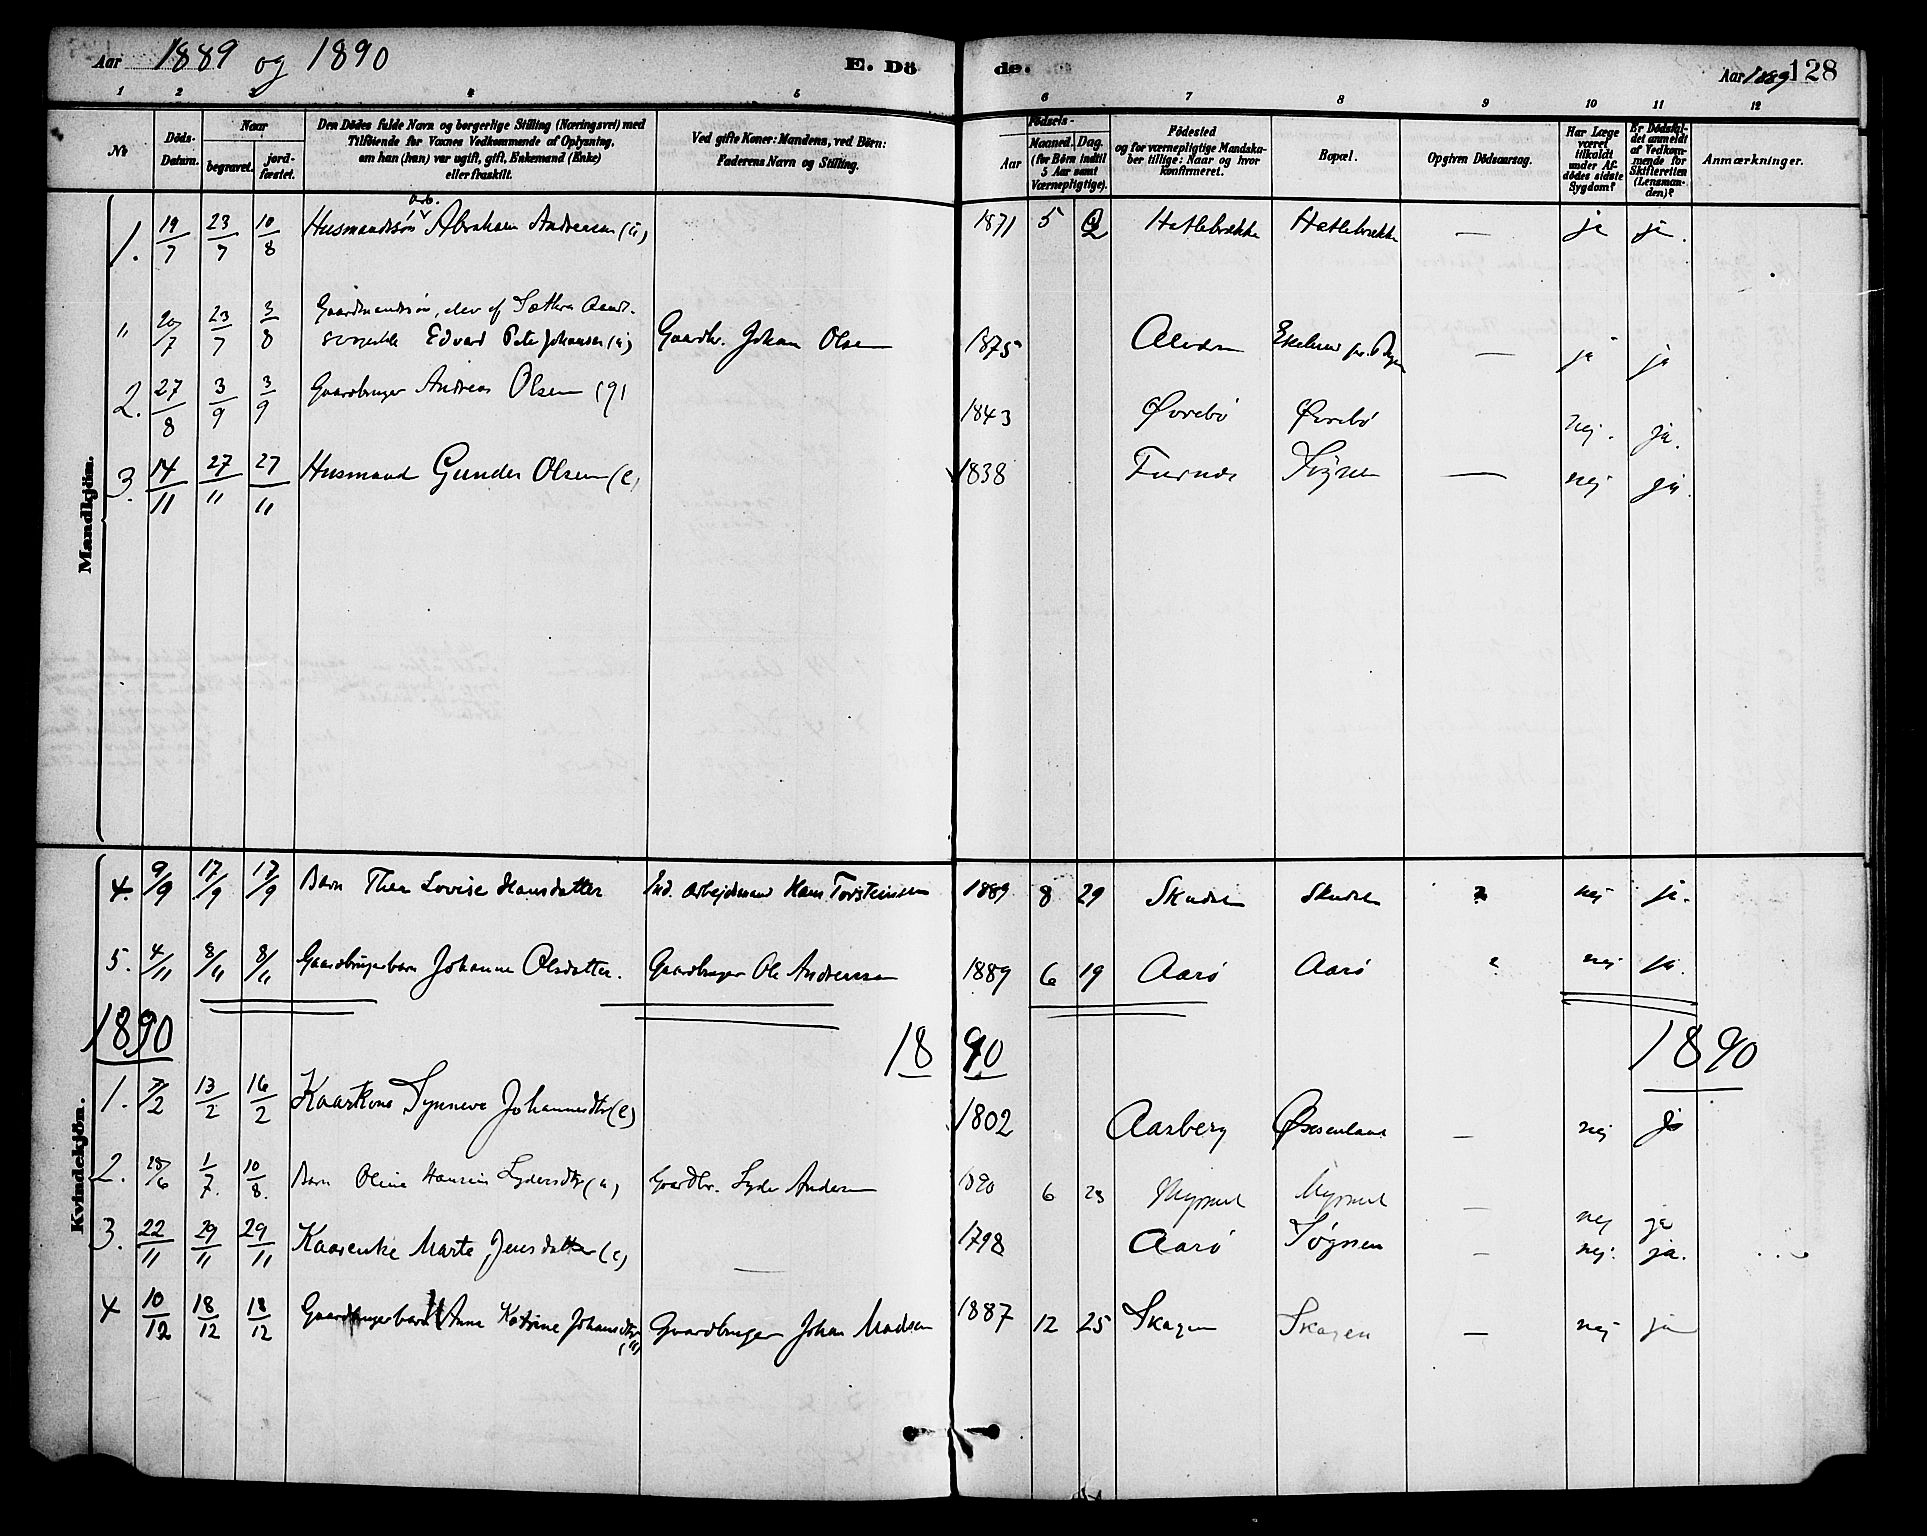 Aar 1889 og 1890 E. Dö de. Aar 1889 128
1 2 3 4 5 6 7 8 9 10 11 12
№ Döds-Datum. Naar begravet. jord-fæstet. Den Dödes fulde Navn og borgerlige Stilling (Næringsvei) med Tilföiende for Voxnes Vedkommende af Oplysning, om han (hun) var ugift, gift, Enkemand (Enke) eller fraskilt. Ved gifte Koner: Mandens, ved Börn: Faderens Navn og Stilling. Födsels- Aar Maaned. Dag. (for Börn indtil 5 Aar samt Værnepligtige). Födested og for værnepligtige Mandskaber tillige: Naar og hvor konfirmeret. Bopæl. Opgiven Dödsaarsag. Har Læge været tilkaldt under Afdödes sidste Sygdom? Er Dödsfaldet anmeldt af Vedkommende for Skifteretten (Lensmanden)? Anmærkninger.
Mandkjön.
1. 19/7 23/7 10/8 Husmandssøn Abraham Andreasen (u) 1871 5 Hatlebrække Hatlebrække — ja ja.
" 20/7 23/7 3/8 Gaardmandssøn, elev af
Edvard Peter Johansen (u) Gaardbr. Johan Olsen 1875 — ja ja
2. 27/8 3/9 3/9 Gaardbruger Andreas Olsen (g) 1843 Øvrebø Øvrebø nej. ja.
3. 14/11 27/11 27/11 Husmand Gunder Olsen (e) 1838 Furnes Sögnen — nej ja.
Kvindekjön.
4. 9/9 17/9 17/9 Barn Thea Lovise Hansdatter Ind. Arbejdsmand Hans Torsteinsen 1889 8 29 Skudsen Skudsen ? nej ja.
5. 4/11 8/11 8/11 Gaardbrugerbarn Johanne Olsdatter. Gaardbruger Ole Andreassen 1889 6 19 Aarø Aarø nej ja.
1890 1890 1890
1. 7/2 13/2 16/2 Kaarkone Synneve Johannesdtr (e) 1802 Aasberg — nej ja
2. 28/6 1/7. 10/8. Barn Oline Hansine Lydersdtr (u) Gaardbr. Lyder Andersen 1890 6 23 — nej ja
3. 22/11 29/11 29/11 Kaarenke Marte Jensdatter (e) — 1798 Aarø Søgnen — nej. ja.
4 10/12 18/12 18/12 Gaardbrugerbarn Anne Katrine Johansdtr (u) Gaardbruger Johan Madsen 1887 12 25 Skagen Skagen — nej ja